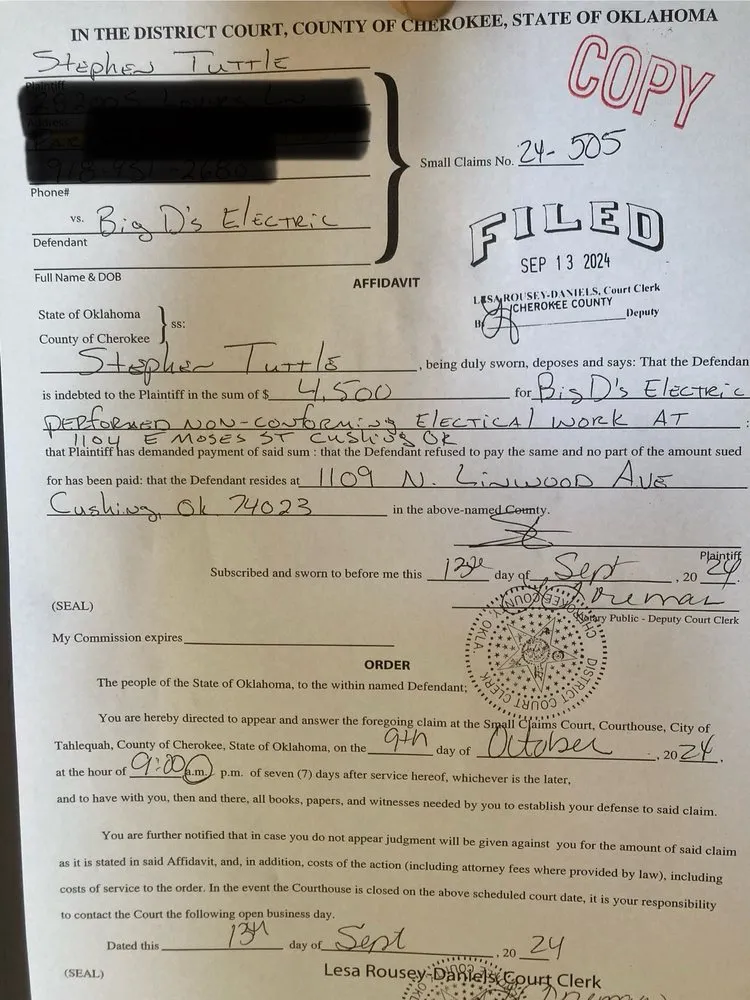 IN THE DISTRICT COURT, COUNTY OF CHEROKEE, STATE OF OKLAHOMA
Stephen Tuttle
COPY
Plaintiff
Address
Small Claims No. 24-505
Phone#
vs. Big D's Electric
Defendant
FILED
SEP 13 2024
Full Name & DOB
AFFIDAVIT
LESA ROUSEY-DANIELS, Court Clerk
CHEROKEE COUNTY
Deputy
State of Oklahoma
ss:
County of Cherokee
Stephen Tuttle, being duly sworn, deposes and says: That the Defendan
is indebted to the Plaintiff in the sum of $ 4,500 for Big D's Electric
PERFORMED NON-CONFORMING ELECTICAL WORK AT
1104 E MOSES ST CUSHING OK
that Plaintiff has demanded payment of said sum : that the Defendant refused to pay the same and no part of the amount sued
for has been paid: that the Defendant resides at 1109 N. Linwood Ave
Cushing, Ok 74023 in the above-named County.
Plaintiff
Subscribed and sworn to before me this 13th day of Sept, 20 24
(SEAL)
Notary Public - Deputy Court Clerk
My Commission expires
ORDER
The people of the State of Oklahoma, to the within named Defendant;
You are hereby directed to appear and answer the foregoing claim at the Small Claims Court, Courthouse, City of
Tahlequah, County of Cherokee, State of Oklahoma, on the 9th day of October, 20 24,
at the hour of 9:00 a.m. p.m. of seven (7) days after service hereof, whichever is the later,
and to have with you, then and there, all books, papers, and witnesses needed by you to establish your defense to said claim.
You are further notified that in case you do not appear judgment will be given against you for the amount of said claim
as it is stated in said Affidavit, and, in addition, costs of the action (including attorney fees where provided by law), including
costs of service to the order. In the event the Courthouse is closed on the above scheduled court date, it is your responsibility
to contact the Court the following open business day.
Dated this 13th day of Sept, 20 24
(SEAL)
Lesa Rousey-Daniels, Court Clerk